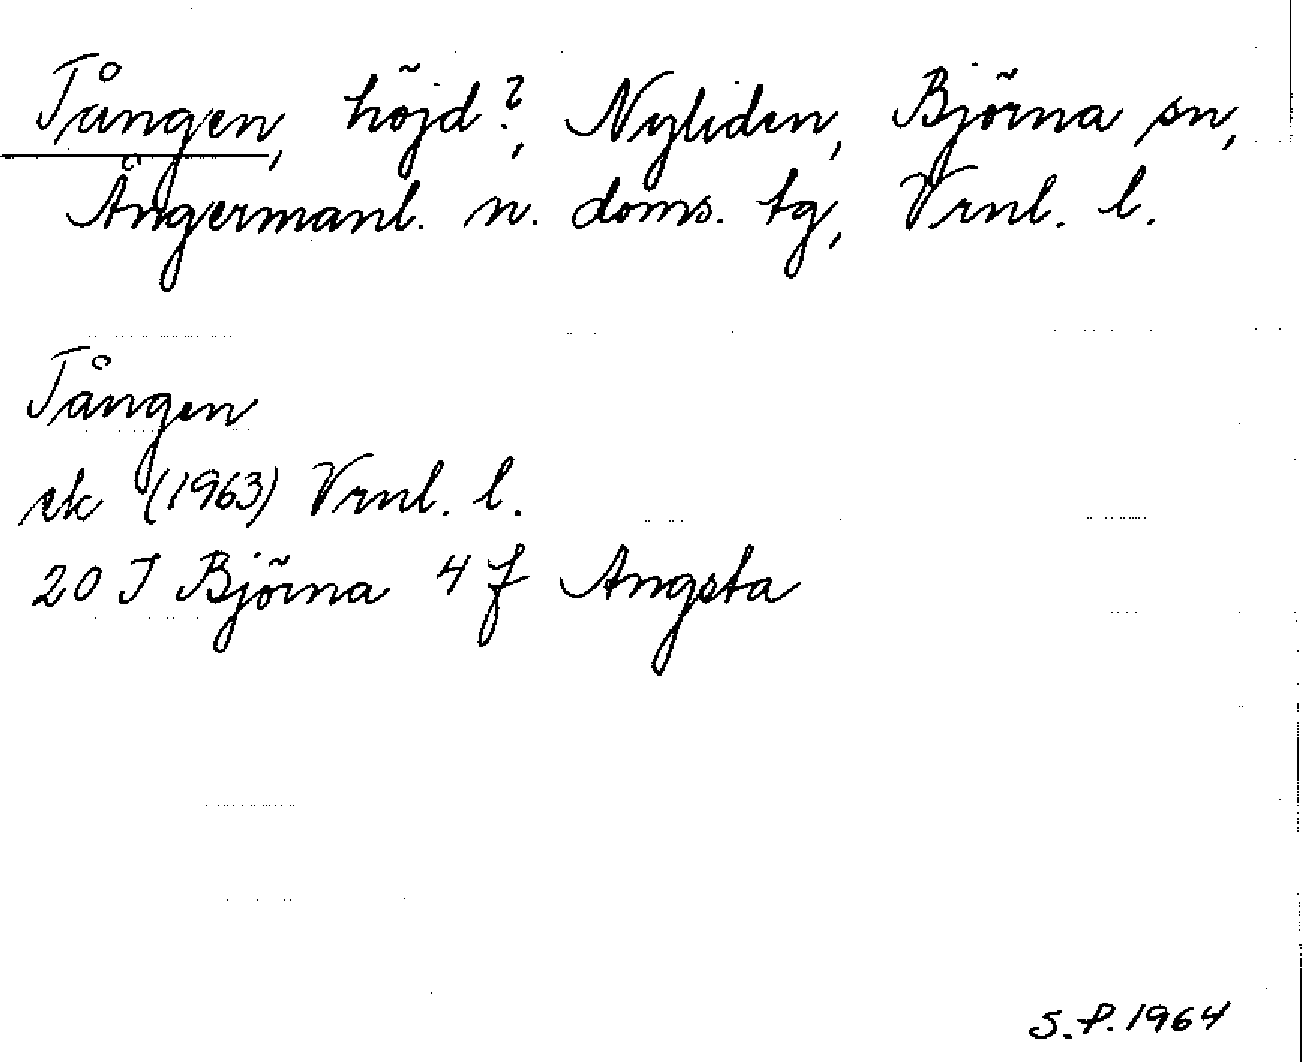 Tången, höjd?, Nyliden, Björna sn,
Ångermanl. n. doms. tg, Vrnl. l.
Tången
ek (1963) Vrnl. l.
20 I Björna 4 f Angsta
S.P. 1964